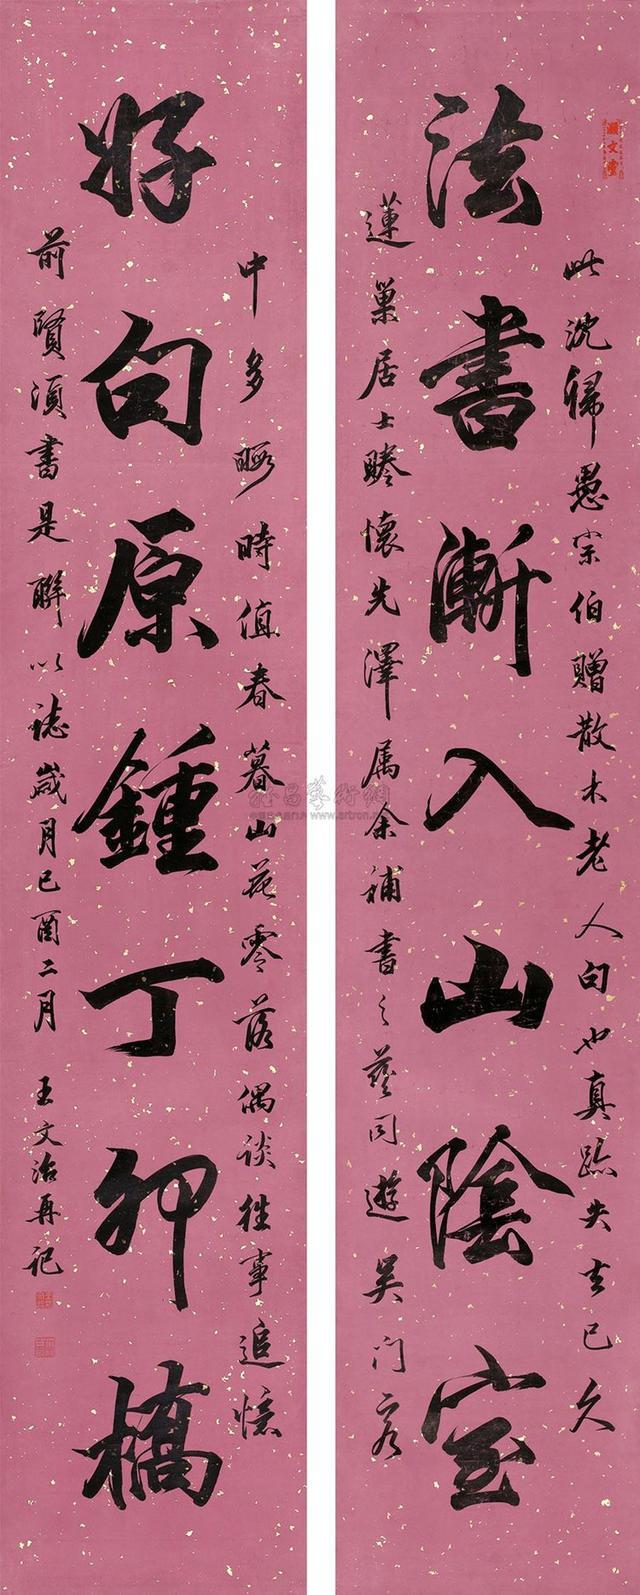 法書漸入山陰室
此沈歸愚宗伯贈散木老人句也真跡失去已久
蓮巢居士睠懷先澤屬余補書之蓋同遊吳門客
好句原鍾丁卯橋
中多暇時值春暮山花零落偶談往事追憶
前賢須書是聯以誌歲月己酉二月
王文治再記
雅昌藝術網
www.artron.net